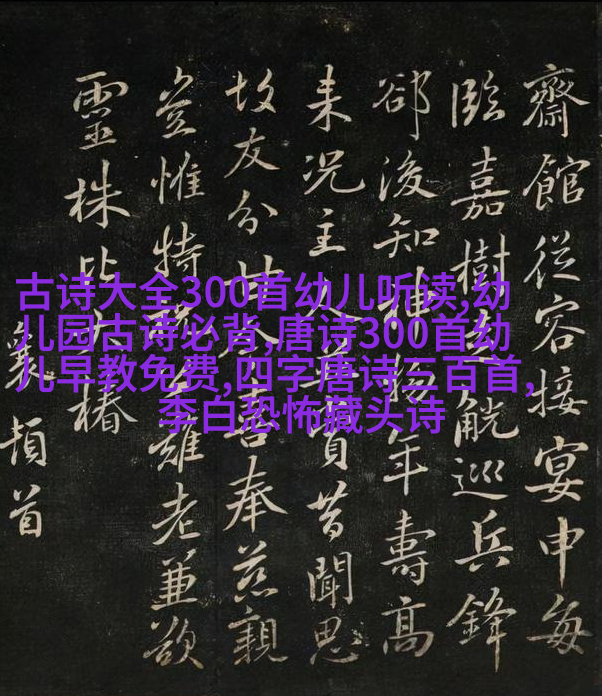 齋館從容接宴申每
臨嘉樹觥巡兵鋒
郤後知物年壽高
来況主人賓昔聞思
故友分奉慈親
豈惟特難老兼欲
靈株比大椿
襄頓首
古诗大全300首幼儿听读,幼
儿园古诗必背,唐诗300首幼
儿早教免费,四字唐诗三百首,
李白恐怖藏头诗